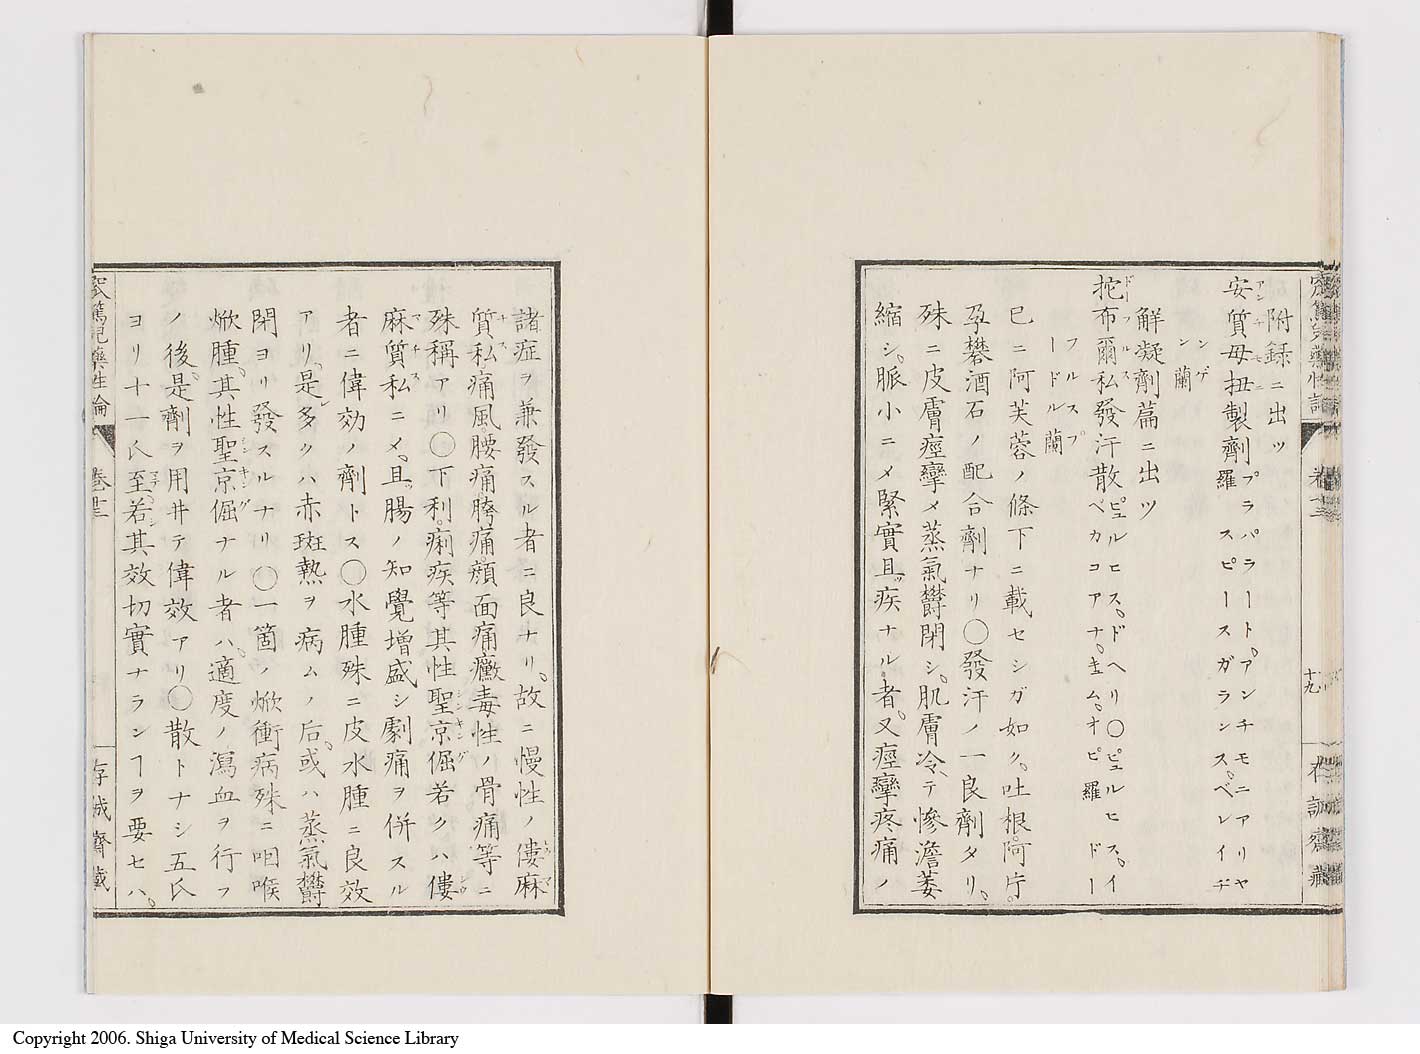 附録ニ出ツ
安質母扭製劑 プラパラート。アンチモニアリヤ
羅 スピースガランス。ベレイヂ
ンゲ
ン 蘭
解凝劑篇ニ出ツ
扡布爾私發汗散 ピュルヒス。ドヘリ〇ピュルヒス。イ
ベカコアナ。エム。オピ 羅 ドー
フルスプ
ードル 蘭
巳ニ阿芙蓉ノ條下ニ載セシガ如ク。吐根。阿片。
孕礬酒石ノ配合劑ナリ〇發汗ノ一良劑タリ。
殊ニ皮膚痙攣メ蒸氣欝閉シ。肌膚冷テ慘澹萎
縮シ。脈小ニメ緊實且疾ナル者。又痙攣疼痛ノ
卷十三
十九
存誠齋藏
諸症ヲ兼發スル者ニ良ナリ。故ニ慢性ノ僂麻
質私痛風。腰痛。胯痛。顔面痛。黴毒性ノ骨痛等ニ
殊稱アリ〇下利。痢疾等其性聖京倔若クハ僂
麻質私ニメ。且腸ノ知覺增盛シ劇痛ヲ併スル
者ニ偉効ノ劑トス〇水腫殊ニ皮水腫ニ良效
アリ。是レ多クハ赤斑熱ヲ病ムノ后。或ハ蒸氣欝
閉ヨリ發スルナリ〇一箇ノ焮衝病殊ニ咽喉
焮腫。其性聖京倔ナル者ハ。適度ノ瀉血ヲ行フ
ノ後。是劑ヲ用井テ偉效アリ〇散トナシ五氏
ヨリ十一氏至。若其效切實ナランヿヲ要セハ。
藥性論
卷十三
存誠齋藏
Copyright 2006. Shiga University of Medical Science Library